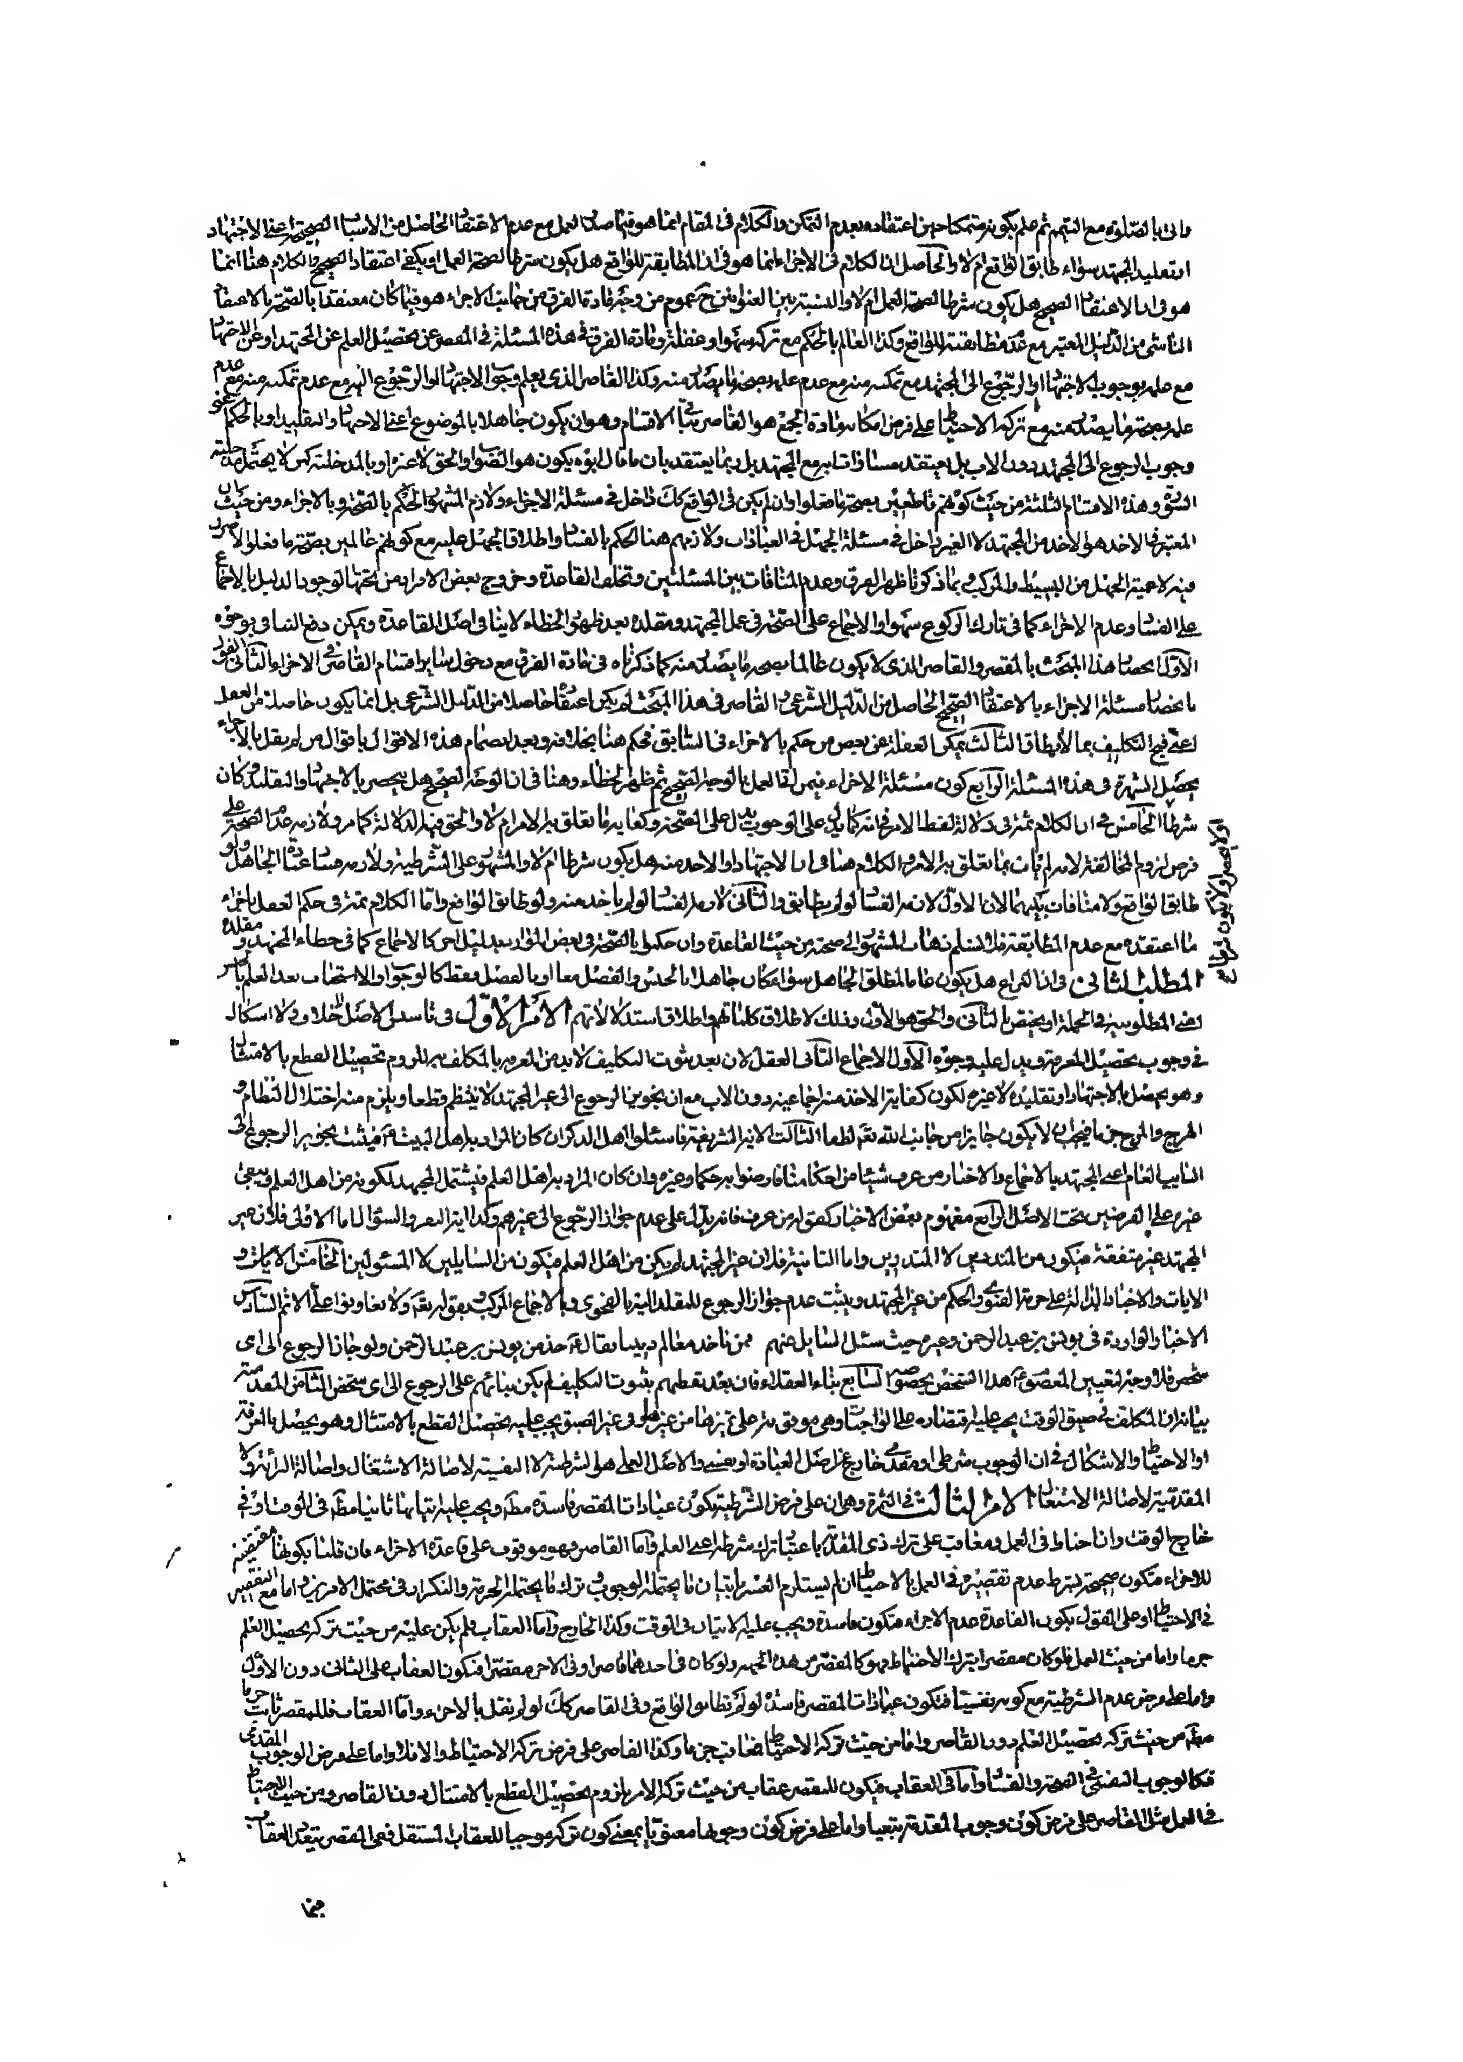 واتى بالصلوة مع التيمم ثم علم بكونه متمكنا حين اعتقاده بعدم التمكن والكلام فى المقام انما هو فيما صدر العمل مع عدم الاعتقاد الحاصل من الاسباب الصحيحة اعنى الاجتهاد
او تقليد المجتهد سواء طابق الواقع ام لا والحاصل ان الكلام فى الاجزاء انما هو فى ان المطابقة للواقع هل يكون شرطا لصحة العمل او يكفى اعتقاد الصحيح والكلام هنا انما
هو فى ان الاعتقاد الصحيح هل يكون شرطا لصحة العمل ام لا والنسبة بين العنوانين ح عموم من وجه ومادة الفرق من جانب الاجزاء هو فيما كان معتقدا بالصحة بالاعتقاد
الناشى من الدليل المعتبر مع عدم مطابقته للواقع وكذا العالم بالحكم مع تركه سهوا وغفلة ومادة الفرق فى هذه المسئلة فى المقصر عن تحصيل العلم عن المجتهد او عن الاجتهاد
مع علمه بوجوب الاجتهاد او الرجوع الى المجتهد مع تمكنه منه مع عدم علمه بصحة ما يصدر منه وكذا القاصر الذى يعلم وجوب الاجتهاد او الرجوع اليه مع عدم تمكنه منه مع عدم
علمه بصحة ما يصدر منه مع تركه الاحتياط على فرض امكانه ومادة الجمع هو القاصر فى باقى الاقسام وهو ان يكون جاهلا بالموضوع اعنى الاجتهاد والتقليد او بالحكم اعنى
وجوب الرجوع الى المجتهد دون الاب بل يعتقد مساوات ابيه مع المجتهد بل ربما يعتقد بان ما قال ابوه يكون هو الصواب والحق لا غيره او بالمدخلية كمن لا يحتمل مدخلية
السورة وهذه الاقسام الثلثة من حيث كونهم قاطعين بصحة ما فعلوا وان لم يكن فى الواقع كك داخل فى مسئلة الاجزاء ولازم المشهور الحكم بالصحة وبالاجزاء ومن حيث ان
المعتبر فى الاخذ هو الاخذ من المجتهد لا الغير داخل فى مسئلة الجهل فى العبادات ولازمهم هنا الحكم بالفساد واطلاق الجهل عليه مع كونهم عالمين بصحة ما فعلوا لا ضرر
فيه لاعمية الجهل من البسيط والمركب وبما ذكرنا ظهر الفرق وعدم المنافات بين المسئلتين وتخلف القاعدة وخروج بعض الافراد من تحتها لوجود الدليل بالاجماع
على الفساد وعدم الاجزاء كما فى تارك الركوع سهوا والاجماع على الصحة فى عمل المجتهد ومقلده بعد ظهور الخطاء لا ينافى اصل القاعدة ويمكن دفع التنافى بوجوه
الاول اختصاص هذا المبحث بالمقصر والقاصر الذى لا يكون عالما بصحة ما يصدر منه كما ذكرناه فى مادة الفرق مع دخول ساير اقسام القاصر فى الاجزاء الثانى القول
باختصاص مسئلة الاجزاء بالاعتقاد الصحيح الحاصل من الدليل الشرعى والقاصر فى هذا المبحث لم يكن اعتقاده حاصلا من الدليل الشرعى بل انما يكون حاصلا من العقل
اعنى قبح التكليف بما لا يطاق الثالث يمكن الغفلة عن بعض من حكم بالاجزاء فى السابق فحكم هنا بخلافه وبعد انضمام هذه الاقوال باقوال من لم يقل بالاجزاء
يحصل الشهرة فى هذه المسئلة الرابع كون مسئلة الاجزاء فيمن اتى العمل بالوجه الصحيح ثم ظهر الخطاء وهنا فى ان الوجه الصحيح هل ينحصر بالاجتهاد والتقليد وكان
شرطا الخامس ان الكلام ثمة فى دلالة لفظ الامر فى انه كما يدل على الوجوب يدل على الصحة وكفاية ما تعلق به الامر ام لا والحق فيه الدلالة كما مر ولازمه عدم الصحة على
فرض لزوم المخالفة لامر اتيان بما تعلق به الامر والكلام هنا فى ان الاجتهاد او الاخذ منه هل يكون شرطا ام لا والمشهور على الشرطية ولازمه فساد عبادة الجاهل ولو
طابق الواقع ولا منافات بينهما لان الاول لازمه الفساد لو لم يطابق والثانى لازمه الفساد لو لم ياخذ منه ولو طابق الواقع واما الكلام ثمة فى حكم العقل باجزاء
ما اعتقده مع عدم المطابقة فلا نسلم ذهاب المشهور الى صحته من حيث القاعدة وان حكموا بالصحة فى بعض الموارد بعد دليل اخر كالاجماع كما فى خطاء المجتهد ومقلده
المطلب الثانى فى ان النزاع هل يكون عاما لمطلق الجاهل سواء كان جاهلا بالجنس والفصل معا او بالفصل فقط كالوجوب والاستحباب بعد العلم بالجنس
اعنى المطلوبية فى الجملة او يختص بالثانى والحق هو الاول وذلك لاطلاق كلماتهم واطلاق استدلالاتهم الامر الاول فى تاسيس الاصل فى المسئلة ولا اشكال
فى وجوب تحصيل المعرفة ويدل عليه وجوه الاول الاجماع الثانى العقل لان بعد ثبوت التكليف لا بد من المعرفة بالمكلف به للزوم تحصيل القطع بالامتثال
وهو يحصل بالاجتهاد او تقليده لا غيره لكون كفاية الاخذ منه اجماعية دون الاب مع ان تجويز الرجوع الى غير المجتهد لا ينتظم قطعا ويلزم منه اختلال النظام و
الهرج والمرج فيجب ان لا يكون جايزا من جانب الله تعه لطفا الثالث الاية الشريفة فاسئلوا اهل الذكر ان كان المراد به اهل البيت ع فيثبت بجواز الرجوع الى
النايب العام اعنى المجتهد بالاجماع والاخبار من عرف شيئا من احكامنا فارضوا به حكما وغيره وان كان المراد به اهل العلم فيشتمل المجتهد لكونه من اهل العلم ويبقى
غيره على الفرضين تحت الاصل الرابع مفهوم بعض الاخبار كقوله من عرف فانه يدل على عدم جواز الرجوع الى غيرهم وكذا اية النفر والسؤال اما الاولى فلان غير
المجتهد غير متفقه فيكون من المنذرين لا المنذرين واما الثانية فلان غير المجتهد لم يكن من اهل العلم فيكون من السايلين لا المسئولين الخامس الايات و
الايات والاخبار الدالة على حرمة الفتوى والحكم من غير المجتهد ويثبت عدم جواز الرجوع للمقلد اليه بالفحوى وبالاجماع المركب وبقوله تعه ولا تعاونوا على الاثم السادس
الاخبار الواردة فى يونس بن عبد الرحمن وغيره حيث سئل السايل عنهم ممن ناخذ معالم ديننا فقال ع خذ من يونس بن عبد الرحمن ولو جاز الرجوع الى اى
شخص فلا وجه لتعيين المعصوم ع هذا الشخص بخصوصه السابع بناء العقلاء فان بعد قطعهم بثبوت التكليف لم يكن بنائهم على الرجوع الى اى شخص الثامن المقدمية
بيانه ان المكلف فى ضيق الوقت يجب عليه قصد على الواجبات وهى موقوفة على تميزها من غيرها وفى غير الضيق يجب عليه تحصيل القطع بالامتثال وهو يحصل بالمعرفة
او الاحتياط والاشكال فى ان الوجوب شرطى او مقدمى خارج عن اصل العبادة او نفسى والاصل العملى هو الشرطية لا النفسية لاصالة الاشتغال واصالة البرائة ولا
المقدمية لاصالة الاشتغال الامر الثالث فى الثمرة وهى ان على فرض الشرطية يكون عبادات المقصر فاسدة مطه ويجب عليه اتيانها ثانيا مطه فى الوقت او فى
خارج الوقت وان احتاط فى العمل ومعاقب على ترك ذى المقدمة باعتبار ترك شرطه اعنى العلم واما القاصر فهو موقوف على قاعدة الاجزاء فان قلنا بكونها مقتضية
للاجزاء فتكون صحيحة بشرط عدم تقصيره فى العمل بالاحتياط ان لم يستلزم العسر باتيان ما يحتمل الوجوب وترك ما يحتمل الحرمة والتكرار فى محتمل الامرين واما مع التقصير
فى الاحتياط او على القول بكون القاعدة عدم الاجزاء فتكون فاسدة ويجب عليه الاتيان فى الوقت وكذا الخارج واما العقاب فلم يكن عليه من حيث تركه تحصيل العلم
جزما واما من حيث العمل فلو كان مقصرا بترك الاحتياط فهو كالمقصر من هذه الجهة ولو كان فى احدهما قاصرا وفى الاخر مقصرا فيكون العقاب على الثانى دون الاول
واما على فرض عدم الشرطية مع كونه نفسيا فتكون عبادات المقصر فاسدة لو لم تطابق الواقع وفى القاصر كك لو لم نقل بالاجزاء واما العقاب فللمقصر ثابت جزما
مطه من حيث تركه تحصيل العلم دون القاصر واما من حيث تركه الاحتياط فعاقب جزما وكذا القاصر على فرض تركه الاحتياط والا فلا واما على فرض الوجوب المقدمى
فكالوجوب النفسى فى الصحة والفساد واما فى العقاب فيكون للمقصر عقاب من حيث تركه الامر بلزوم تحصيل القطع بالامتثال دون القاصر ومن حيث الاحتياط
فى العمل مثل القاصر على فرض كون وجوب المقدمة تبعيا واما على فرض كون وجوبها معنويا بمعنى كون تركه موجبا للعقاب المستقل ففى المقصر يتعدد العقاب
فيما